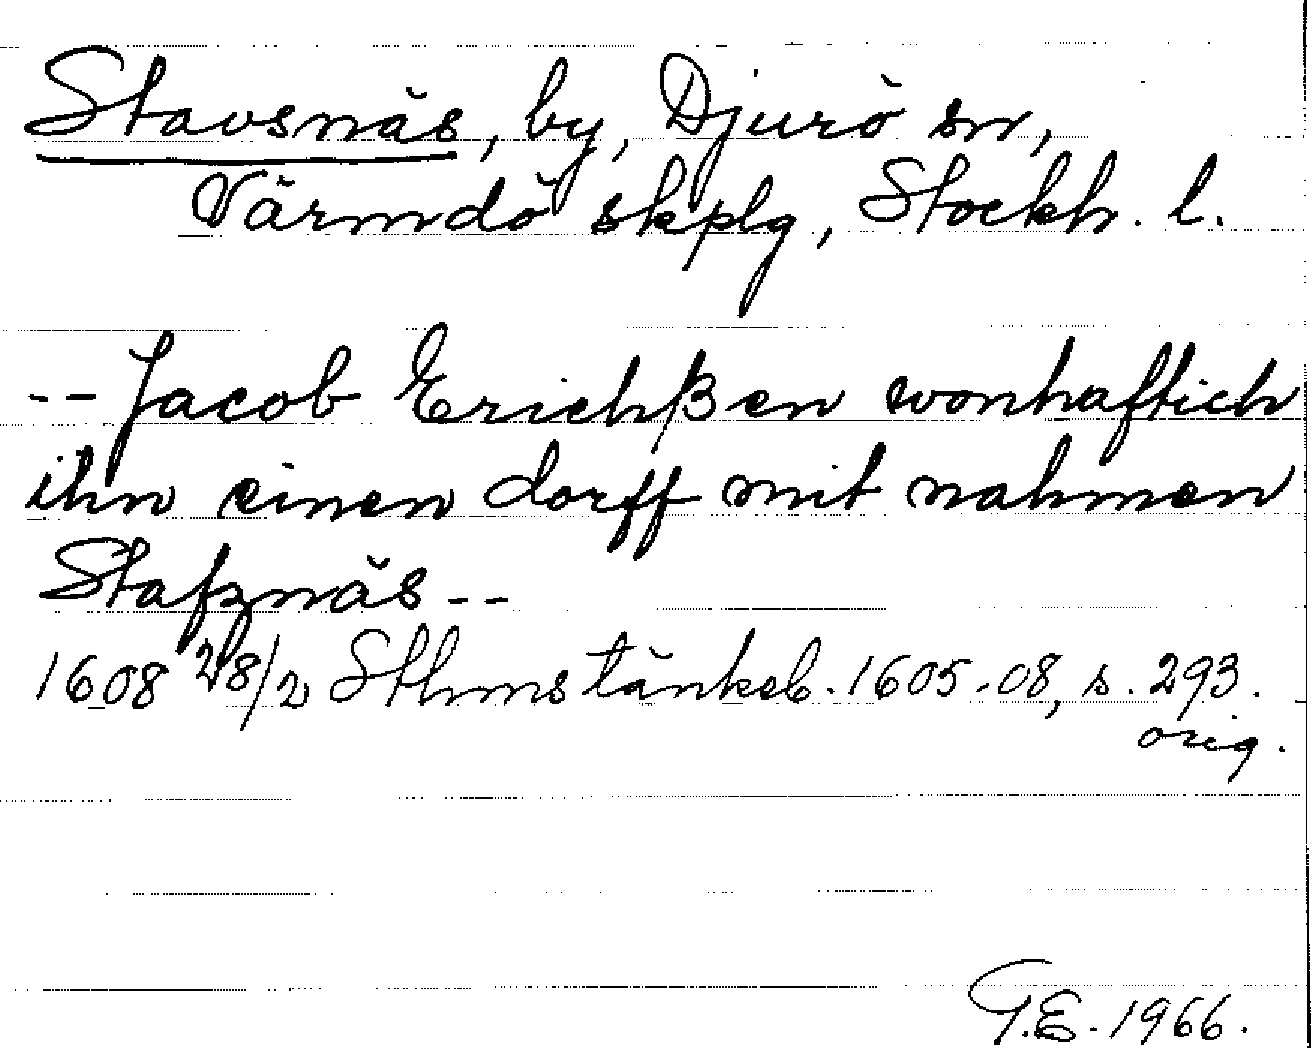 Stavsnäs, by, Djurö sn,
Värmdö skplg, Stockh. l.
-- Jacob Erichßen wonhaftich
ihn einen dorff mit nahmen
Stafznäs --
1608 28/2 Sthms tänkeb. 1605-08, s. 293.
orig.
G.E. 1966.